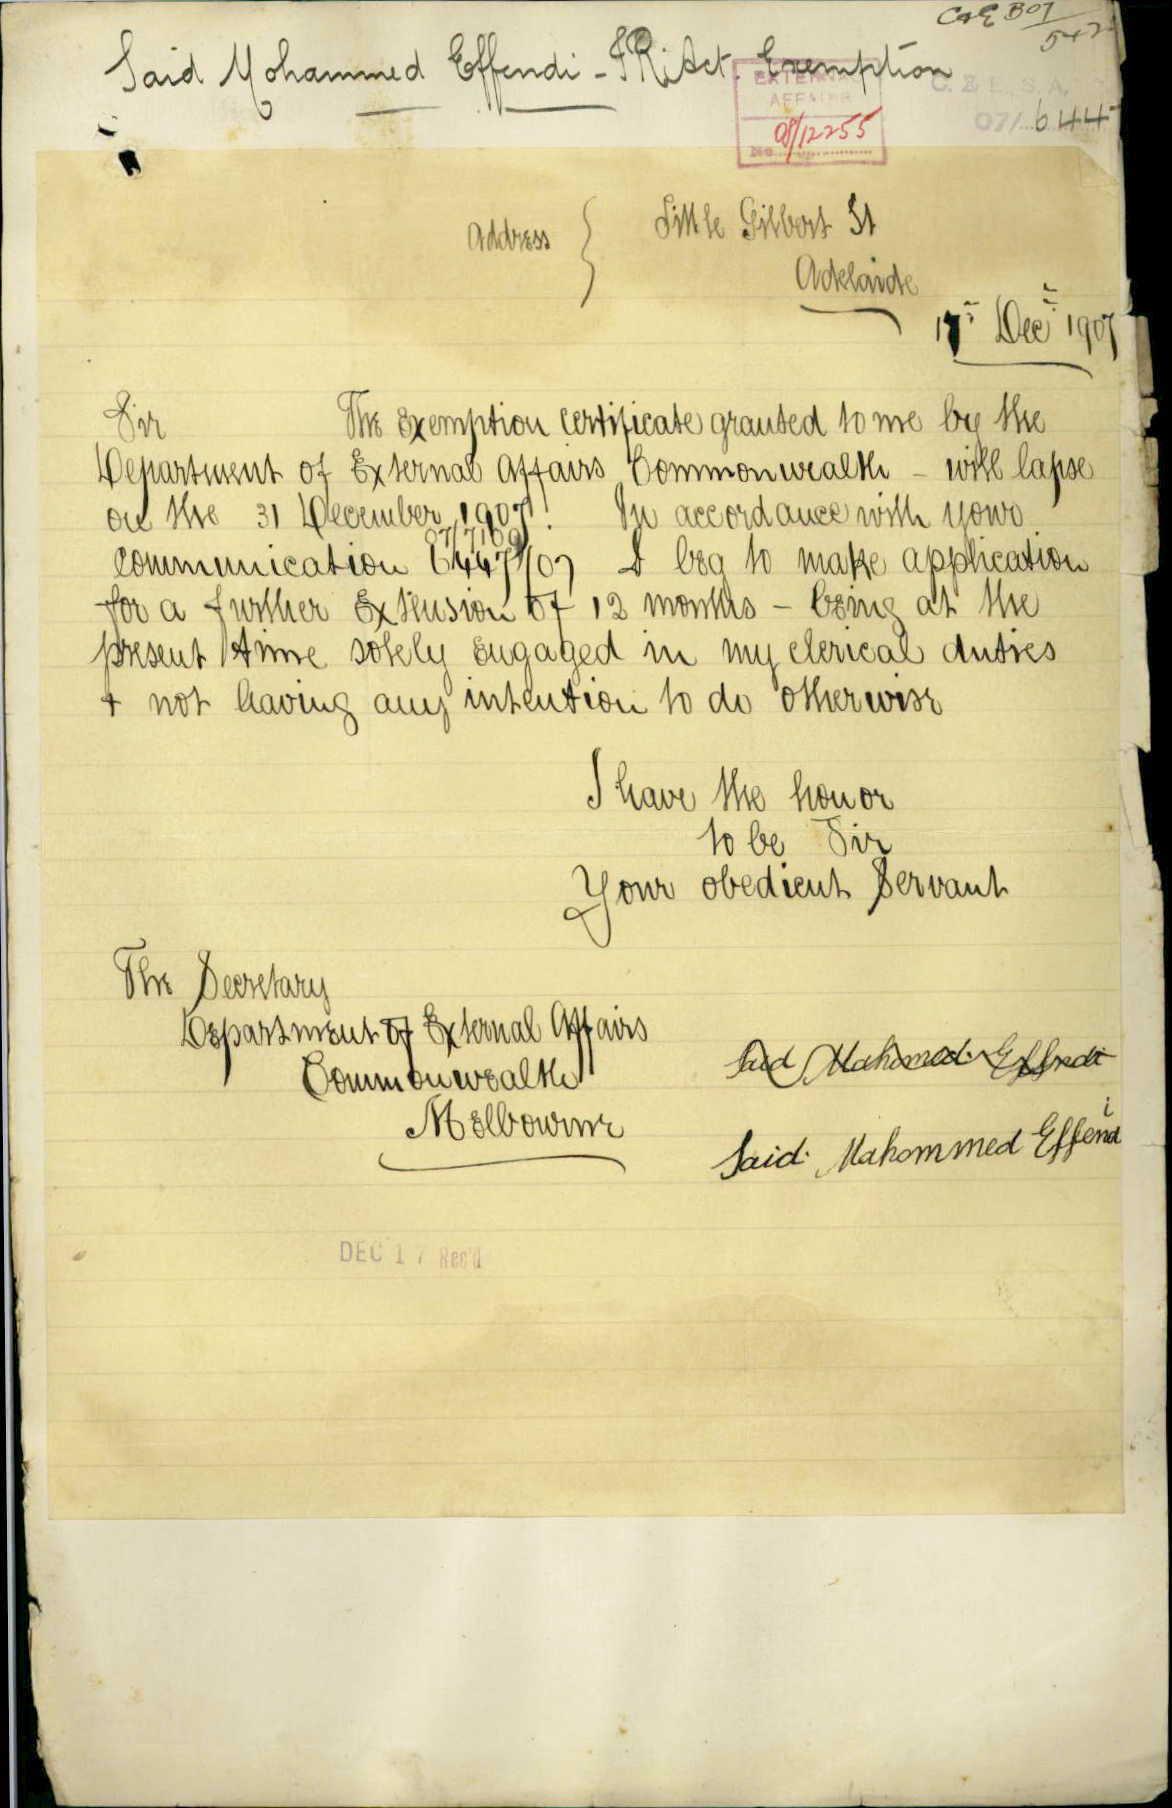 C & E B 07/
542
Said Mohammed Effendi - I R. Act. Exemption
EXTERNAL
AFFAIRS
08/12255
C. & E., S. A.
07/ 6447
Address } Little Gilbert St
Adelaide
17th Decr 1907
Sir The Exemption Certificate granted to me by the
Department of External Affairs Commonwealth - will lapse
on the 31 December 1907! In accordance with your
07/7109
communication 6447/07 I beg to make application
for a further Extension of 12 months - being at the
present time solely engaged in my clerical duties
+ not having any intention to do otherwise
I have the honor
to be Sir
Your obedient Servant
The Secretary
Department of External Affairs
Commonwealth
Melbourne
Said Mahomed Effendi
Said. Mahommed Effendi
DEC 17 Rec'd